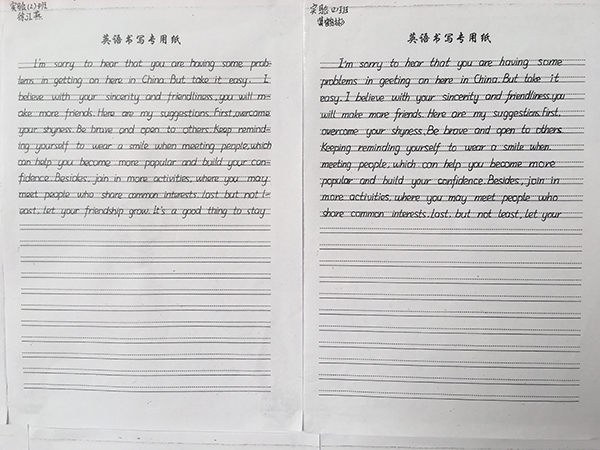 实验(2)班
徐江燕
英语书写专用纸
I'm sorry to hear that you are having some prob-
lems in getting on here in China. But take it easy. I
believe with your sincerity and friendliness, you will m-
ake more friends. Here are my suggestions. First, overcome
your shyness. Be brave and open to others. Keep remind-
ing yourself to wear a smile when meeting people, which
can help you become more popular and build your con-
fidence. Besides, join in more activities, where you may
meet people who share common interests. last but not l-
east, let your friendship grow. It's a good thing to stay
实验
英语书写专用纸
I'm sorry to hear that you are having some
problems in geeting on here in China. But take it
easy. I believe with your sincerity and friendliness, you
will make more friends. Here are my suggestions. First,
overcome your shyness. Be brave and open to others.
Keeping reminding yourself to wear a smile when
meeting people, which can help you become more
popular and build your confidence. Besides, join in
more activities, where you may meet people who
share common interests. last, but not least, let your